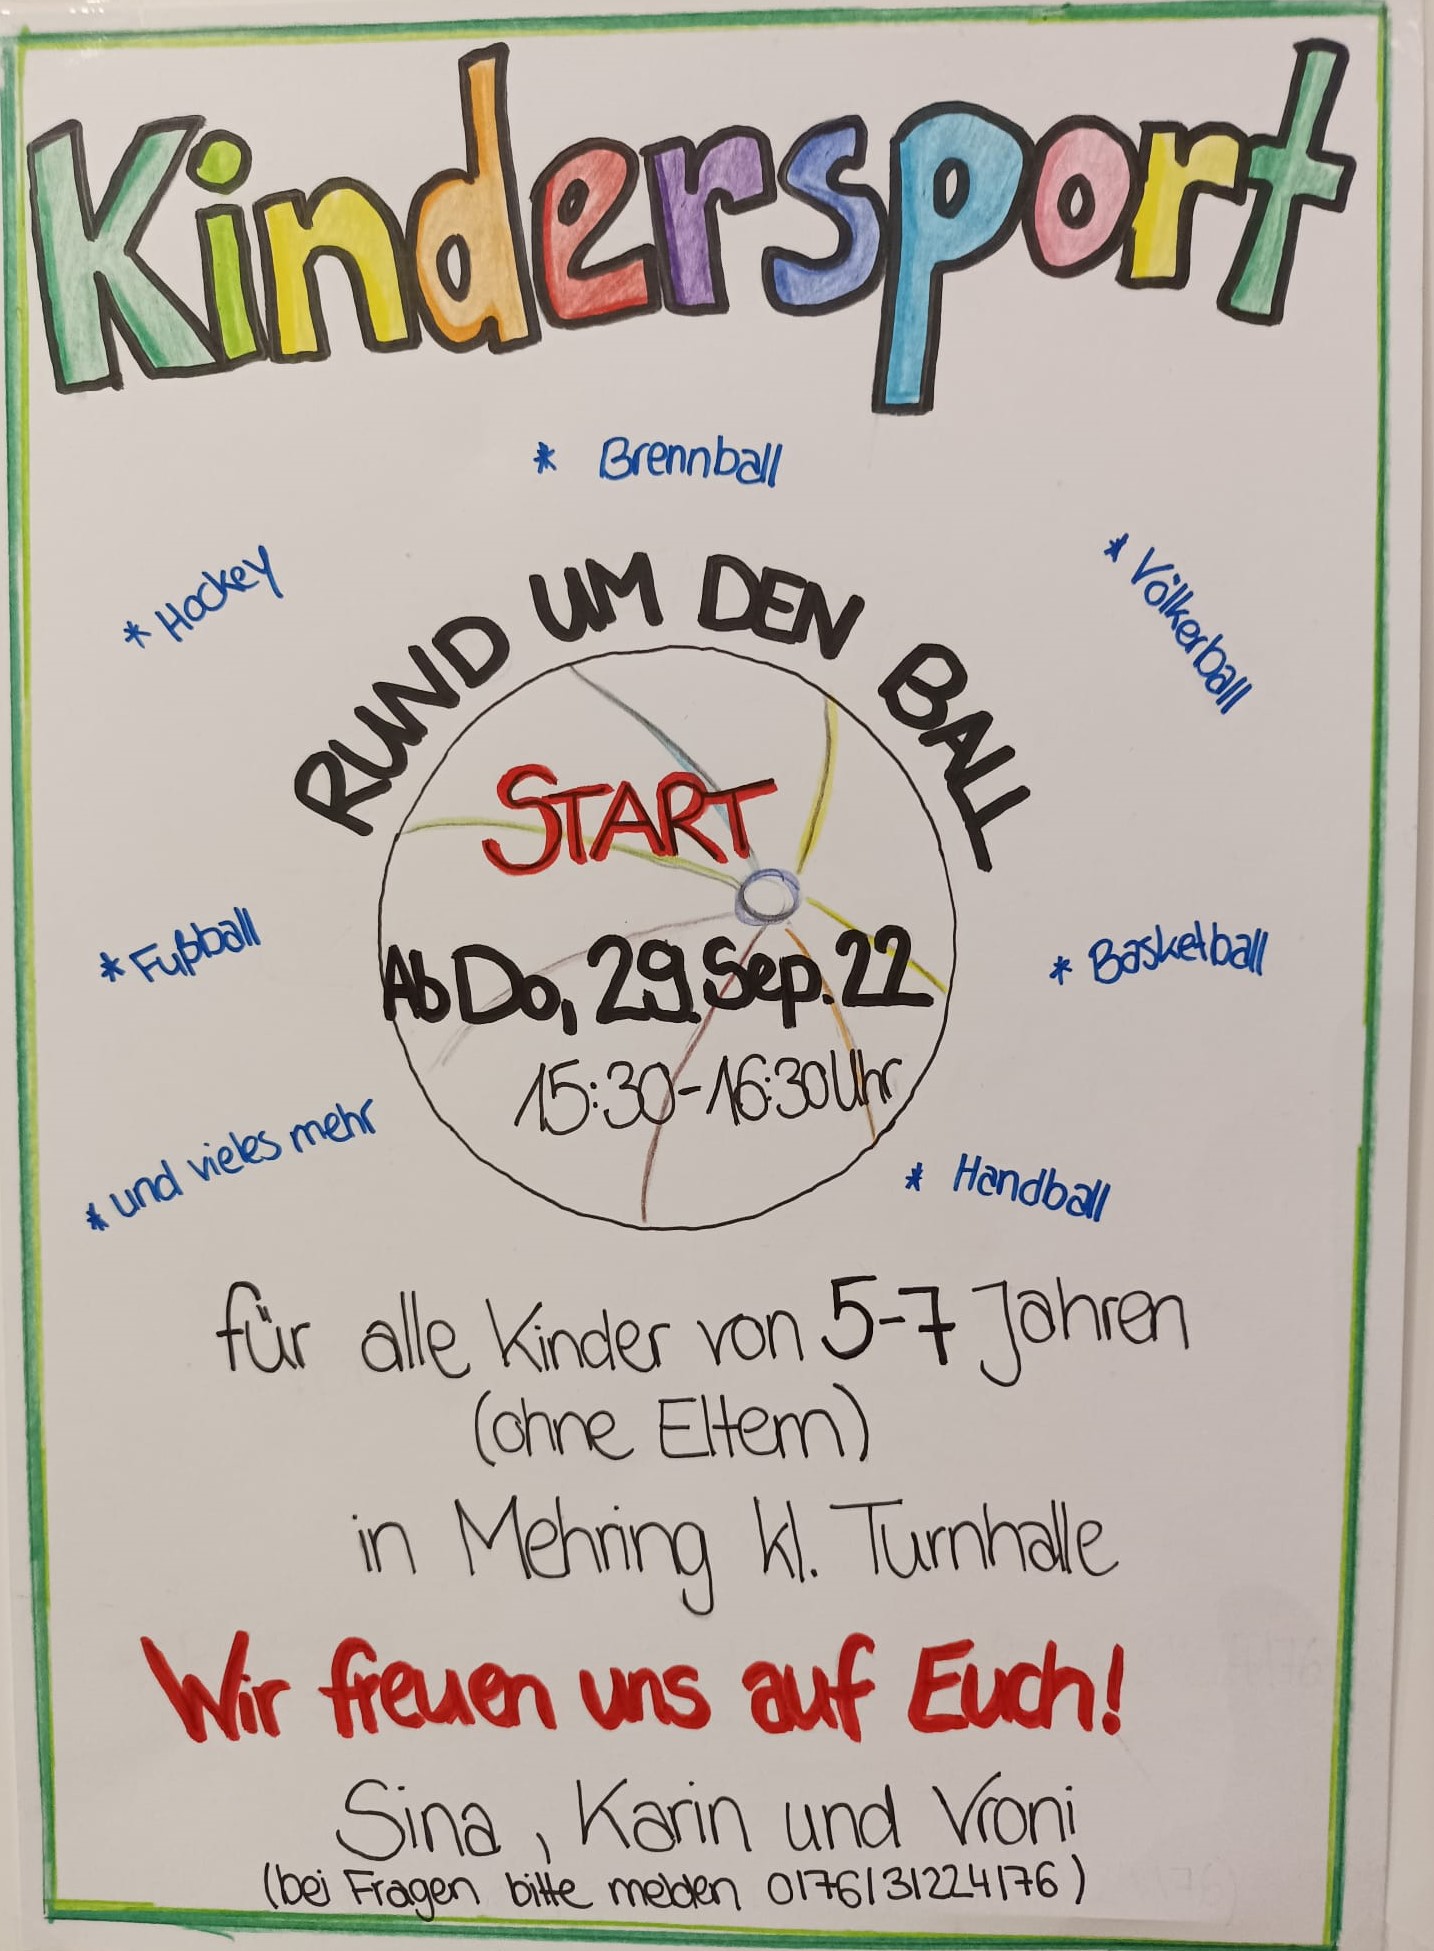 Kindersport
* Brennball
* Hockey
* Völkerball
RUND UM DEN BALL
START
* Fußball
Ab Do, 29. Sep. 22
* Basketball
15:30-16:30 Uhr
* und vieles mehr
* Handball
für alle Kinder von 5-7 Jahren
(ohne Eltern)
in Mehring kl. Turnhalle
Wir freuen uns auf Euch!
Sina, Karin und Vroni
(bei Fragen bitte melden 0176/31224176)